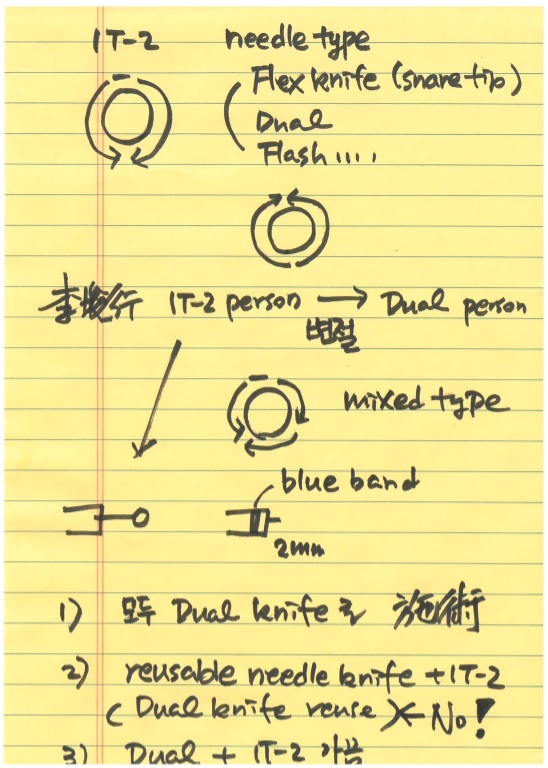 IT-2 needle type
Flex knife (snare tip)
Dual
Flash ....
李 行 IT-2 person → Dual person
변절
mixed type
blue band
2mm
1) 모두 Dual knife로 施術
2) reusable needle knife + IT-2
( Dual knife reuse ) ← No!
3) Dual + IT-2 가끔